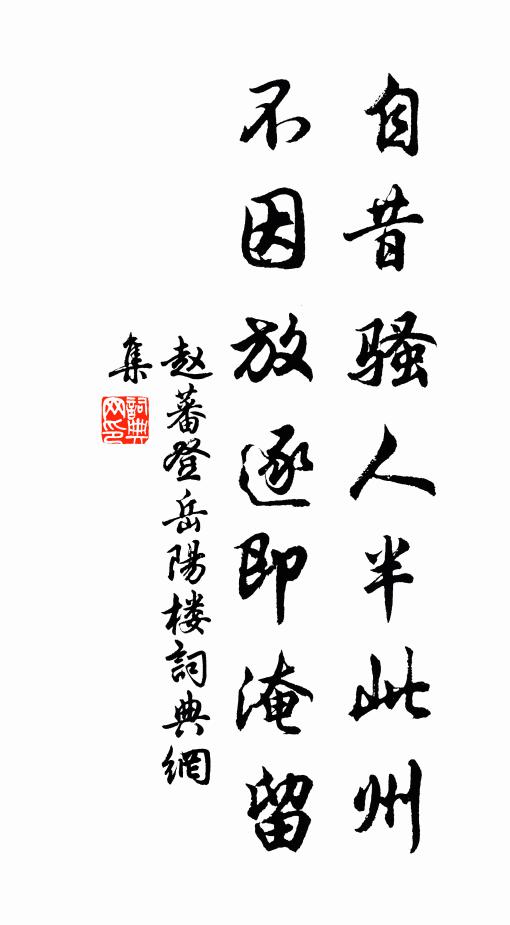 自昔骚人半此州
不因放逐即淹留
赵蕃登岳陽楼詞典網
集
詞典网印